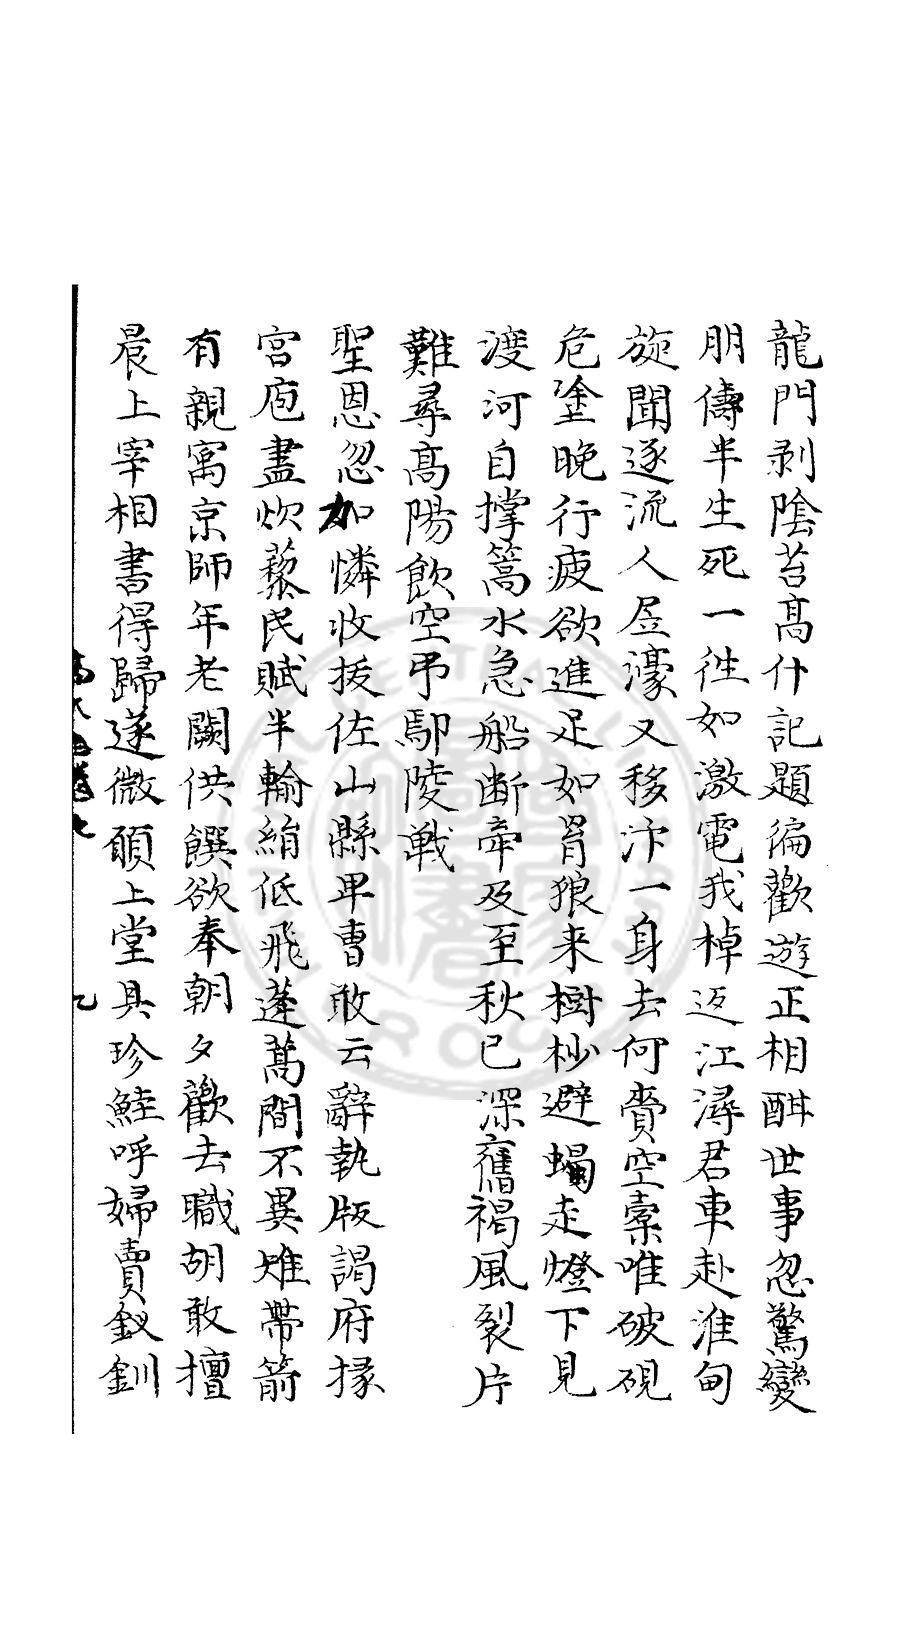 龍門剥陰苔髙什記題徧歡遊正相酣世事忽驚變
朋儔半生死一徃如激電我棹返江潯君車赴淮甸
旋聞逐流人屋濠又移汴一身去何賫空橐唯破硯
危塗晚行疲欲進足如罥狼来樹杪避蝎走燈下見
渡河自撑篙水急船断牽及至秋已深舊褐風裂片
難尋髙陽飲空弔鄢陵戰
聖恩忽如憐收拔佐山縣卑曹敢云辭執版謁府掾
宫庖盡炊藜民賦半輸絹低飛蓬蒿間不異雉帶箭
有親寓京師年老闕供饌欲奉朝夕歡去職胡敢擅
晨上宰相書得歸遂微願上堂具珍鮭呼婦賣釵釧